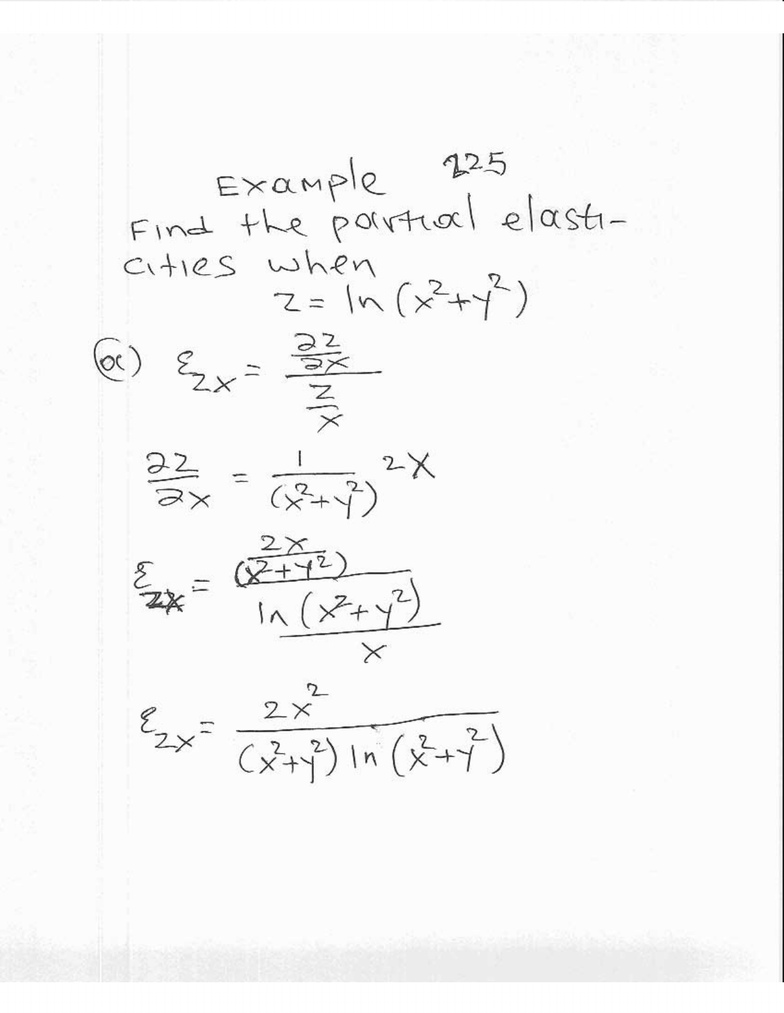 Example 225
Find the partial elasti-
cities when
z = ln (x²+y²)
(a) ε_zx = (∂z/∂x)/(z/x)
∂z/∂x = 1/(x²+y²) 2x
ε_zx = (2x/(x²+y²))/(ln (x²+y²)/x)
ε_zx = 2x²/((x²+y²) ln (x²+y²))